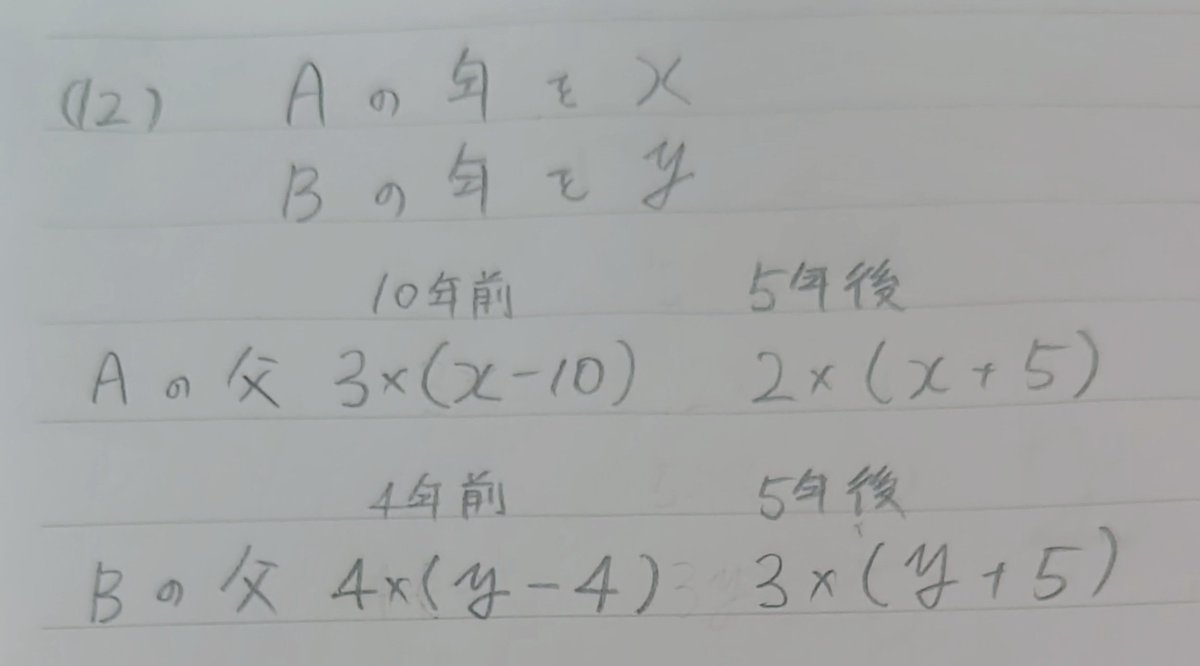 (12) Aの年をx
Bの年をy
10年前 5年後
Aの父 3×(x-10) 2×(x+5)
4年前 5年後
Bの父 4×(y-4) 3×(y+5)